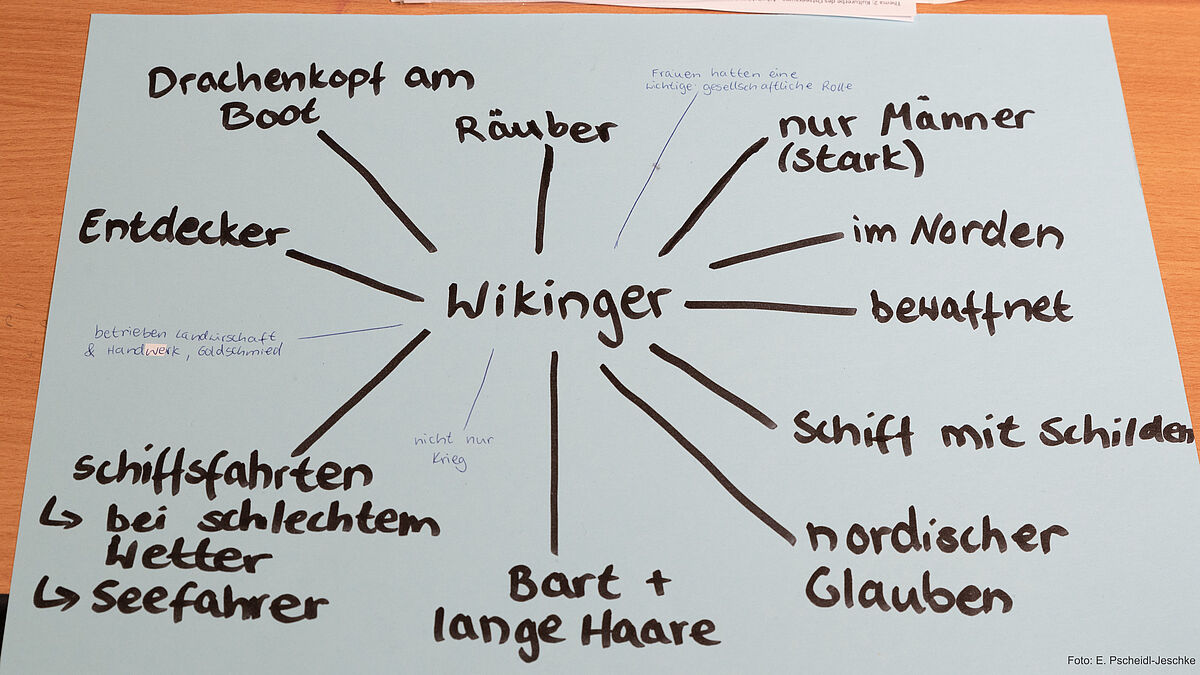 Drachenkopf am
Boot
Räuber
Frauen hatten eine
wichtige gesellschaftliche Rolle
nur Männer
(stark)
Entdecker
im Norden
Wikinger
bewaffnet
betrieben Landwirschaft
& Handwerk, Goldschmied
nicht nur
Krieg
Schiff mit Schilden
schiffsfahrten
↳ bei schlechtem
Wetter
↳ Seefahrer
nordischer
Glauben
Bart +
lange Haare
Foto: E. Pscheidl-Jeschke